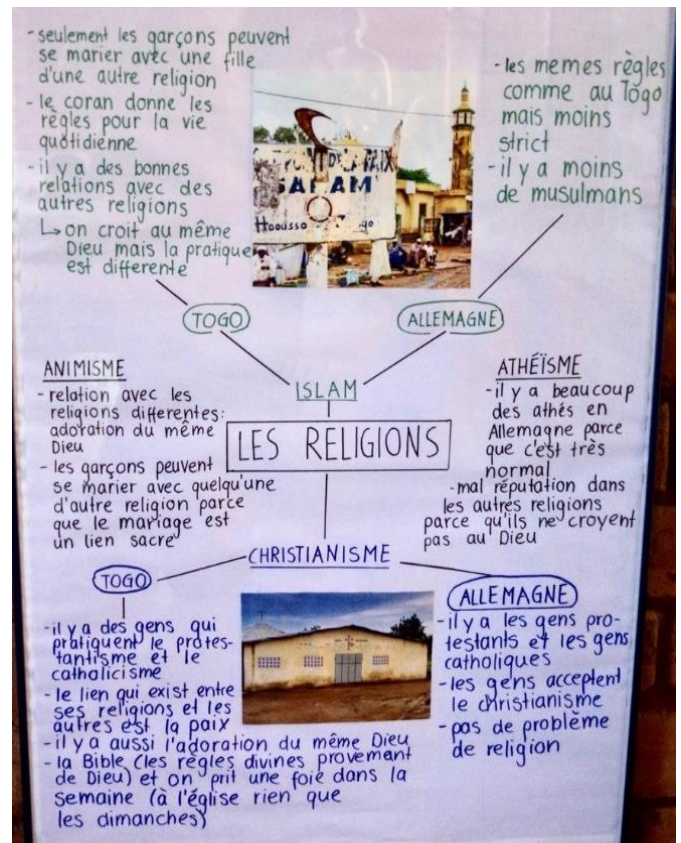 - seulement les garçons peuvent
se marier avec une fille
d'une autre religion
- le coran donne les
règles pour la vie
quotidienne
- il y a des bonnes
relations avec des
autres religions
↳ on croit au même
Dieu mais la pratique
est differente
- les memes règles
comme au Togo
mais moins
strict
- il y a moins
de musulmans
DE LA PAIX
SALAM
Haousso
TOGO
ALLEMAGNE
ISLAM
LES RELIGIONS
ANIMISME
- relation avec les
religions differentes:
adoration du même
Dieu
- les garçons peuvent
se marier avec quelqu'une
d'autre religion parce
que le mariage est
un lien sacre
ATHÉÏSME
- il y a beaucoup
des athés en
Allemagne parce
que c'est très
normal
- mal réputation dans
les autres religions
parce qu'ils ne croyent
pas au Dieu
CHRISTIANISME
TOGO
- il y a des gens qui
pratiquent le protes-
tantisme et le
catholicisme
- le lien qui exist entre
ses religions et les
autres est la paix
- il y a aussi l'adoration du même Dieu
- la Bible (les règles divines provemant
de Dieu) et on prit une foie dans la
semaine (à l'église rien que
les dimanches)
ALLEMAGNE
- il y a les gens pro-
testants et les gens
catholiques
- les gens acceptent
le christianisme
- pas de problème
de religion